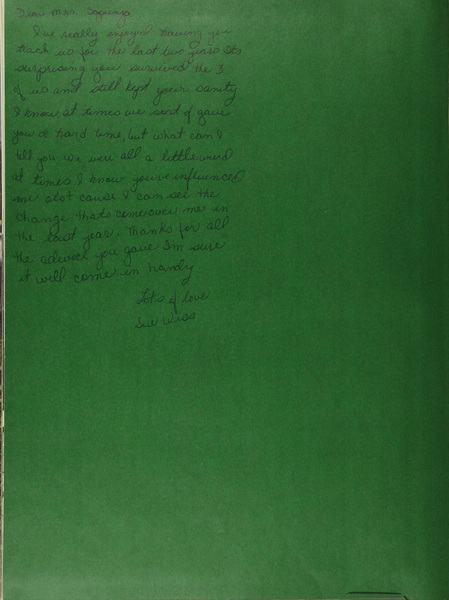 Dear Mrs.
I've really enjoyed having you
teach us for the last two years Its
surprising you survived the 3
of us and still kept your sanity
I know at times we sort of gave
you a hard time, but what can I
tell you we were all a little weird
at times. I know you've influenced
me alot cause I can see the
change thats come over me in
the last year. Thanks for all
the advice you gave I'm sure
it will come in handy
Lots of love
Sue